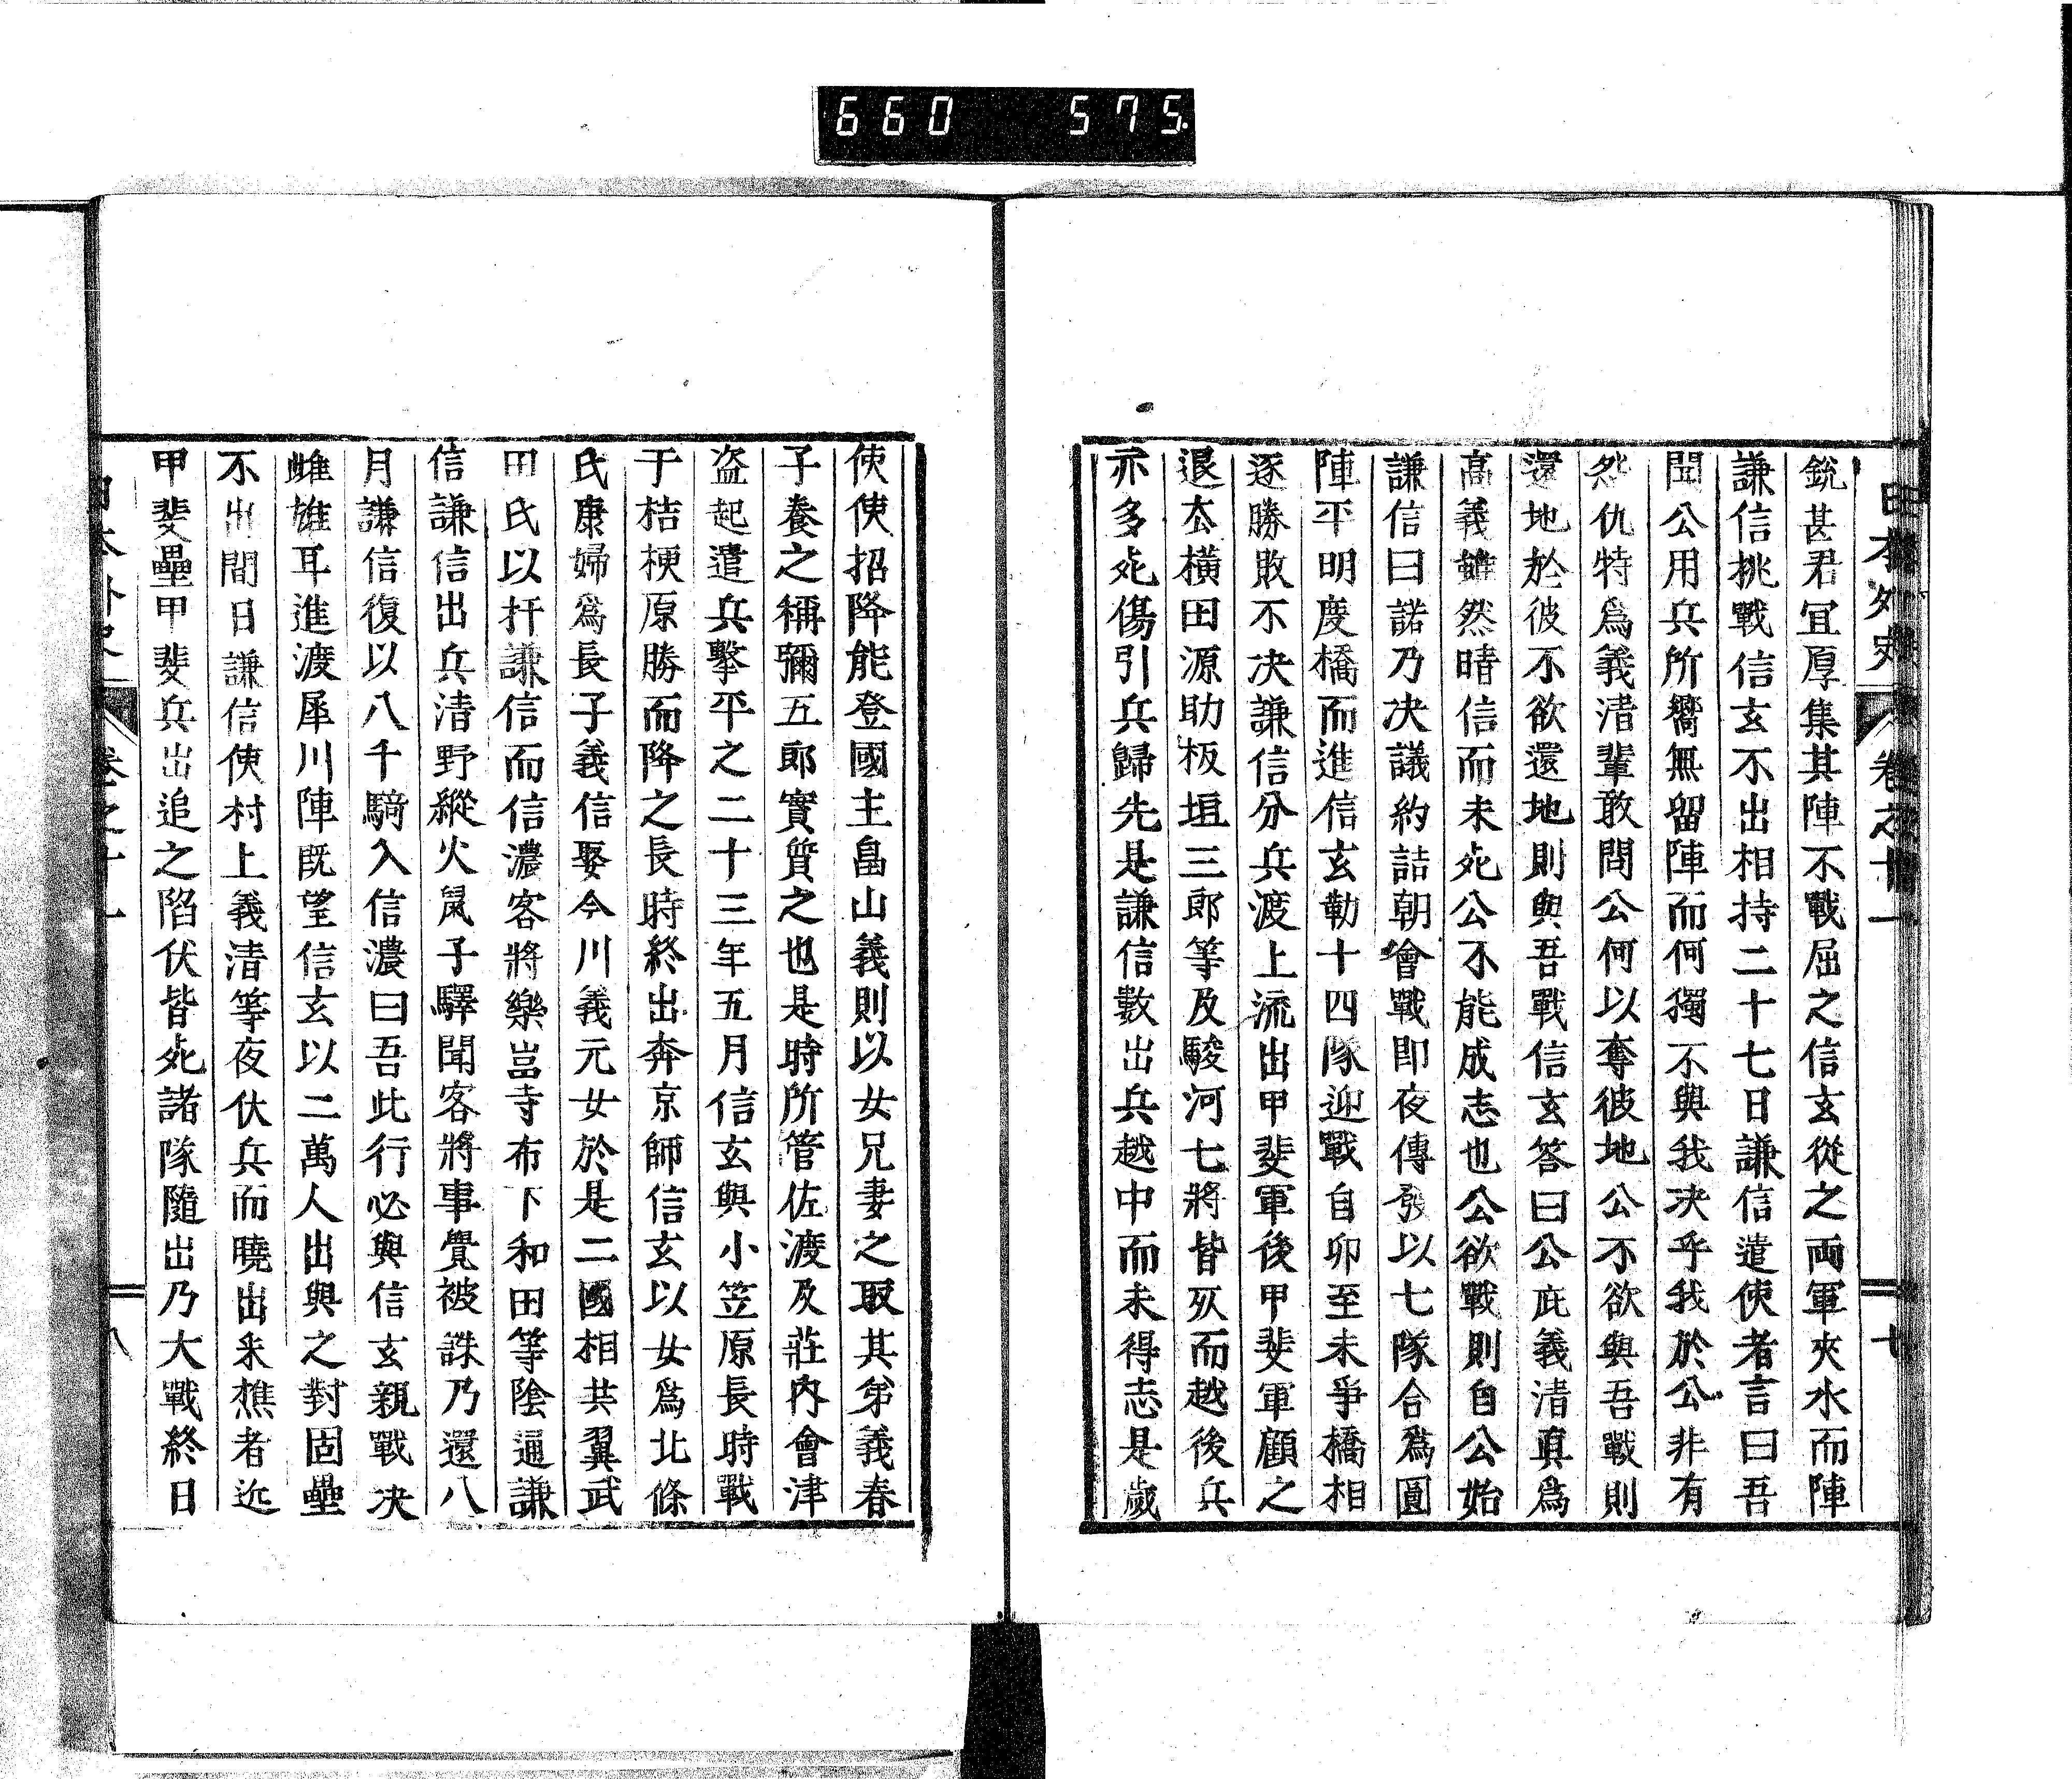 660 575
日本外史 卷之十一 七
銃甚君宜厚集其陣不戰屈之信玄從之兩軍夾水而陣
謙信挑戰信玄不出相持二十七日謙信遣使者言曰吾
聞公用兵所嚮無留陣而何獨不與我決乎我於公非有
然仇特爲義淸輩敢問公何以奪彼地公不欲與吾戰則
還地於彼不欲還地則與吾戰信玄答曰公庇義淸眞爲
高義雖然晴信而未死公不能成志也公欲戰則自公始
謙信曰諾乃決議約詰朝會戰即夜傳發以七隊合爲圓
陣平明度橋而進信玄勒十四隊迎戰自卯至未爭橋相
逐勝敗不決謙信分兵渡上流出甲斐軍後甲斐軍顧之
退去橫田源助板垣三郎等及駿河七將皆死而越後兵
亦多死傷引兵歸先是謙信數出兵越中而未得志是歲
使使招降能登國主畠山義則以女兄妻之取其弟義春
子養之稱彌五郎實質之也是時所管佐渡及莊內會津
盜起遣兵擊平之二十三年五月信玄與小笠原長時戰
于桔梗原勝而降之長時終出奔京師信玄以女爲北條
氏康婦爲長子義信娶今川義元女於是二國相共翼武
田氏以扞謙信而信濃客將樂岩寺布下和田等陰通謙
信謙信出兵淸野縱火鼠子驛聞客將事覺被誅乃還八
月謙信復以八千騎入信濃曰吾此行必與信玄親戰決
雌雄耳進渡犀川陣既望信玄以二萬人出與之對固壘
不出間日謙信使村上義淸等夜伏兵而曉出釆樵者近
甲斐壘甲斐兵出追之陷伏皆死諸隊隨出乃大戰終日
日本外史 卷之十一 八